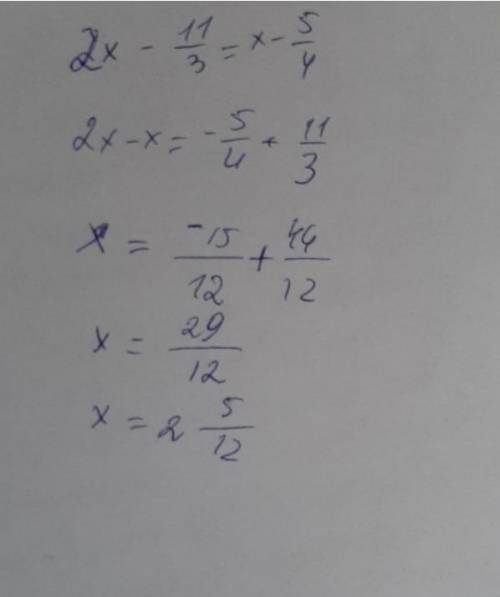 2x - 11/3 = x - 5/4
2x - x = - 5/4 + 11/3
x = -15/12 + 44/12
x = 29/12
x = 2 5/12